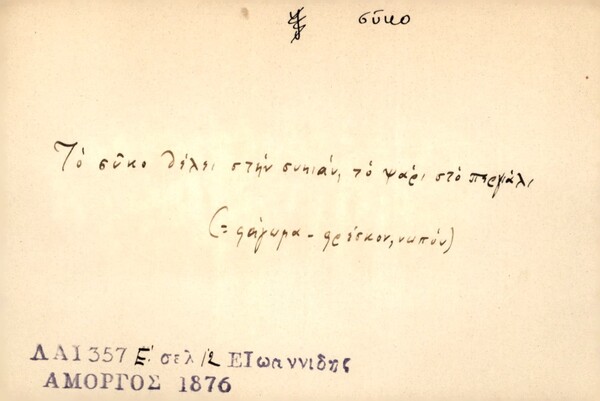 σῦκο
Τὸ σῦκο θέλει στὴν συκιάν, τὸ ψάρι στὸ περγιάλι
(= φάγωμα - φρέσκον, νωπόν)
ΛΑΙ 357 Ε' σελ 12 ΕΙωαννιδης
ΑΜΟΡΓΟΣ 1876